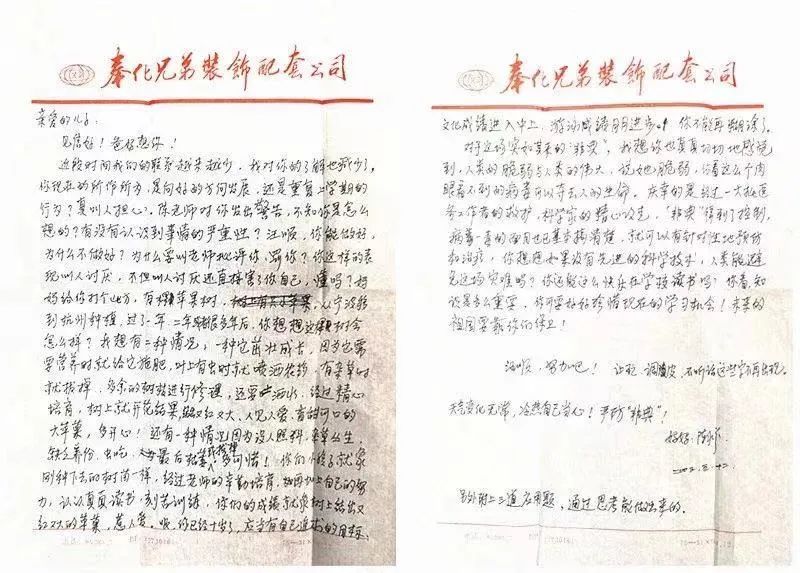 奉化兄弟装飾配套公司
亲爱的儿子：
见信好！爸好想你！
近段时间我们的联系越来越少，我对你的了解也减少了，
你现在的所作所为，是向好的方向发展，还是重复上学期的
行为？真叫人担心。陈老师对你发出警告，不知你是怎么
想的？有没有认识到事情的严重性？汪顺，你能做好，
为什么不做好？为什么要叫老师批评你、骂你？你这样的表
现叫人讨厌，不但叫人讨厌还直接害了你自己，懂吗？妈
妈给你打个比方，有棵苹果树，从宁波移
到杭州种植，过了一年、二年很多年后，你想想这棵树会
怎么样？我想有二种情况，一种它茁壮成长，因为它需
要营养时就给它施肥，叶上有虫时就喷洒农药，有杂草时
就拔掉，多余的树枝进行修理，还要洒水，经过精心
培育，树上就开花结果又红又大，人见人爱，香甜可口的
大苹果，多开心！还有一种情况因为没人照料，杂草丛生，
缺乏养份，虫吃，最后枯萎或拔掉多可惜！你们小孩子就象
刚种下去的树苗一样，经过老师的辛勤培育，加上自己的努
力，认认真真读书，刻苦训练，你们的成绩就象树上结出又
红又大的苹果，惹人爱。顺，你已经十岁了，应当有自己追求的目标：
奉化兄弟装飾配套公司
文化成绩进入中上，游泳成绩月月进步。你不能再糊涂了。
对于这场突如其来的“非典”，我想你也真真切切地感觉
到，人类的脆弱与人类的伟大，说她脆弱，你看这么个肉
眼看不到的病毒可以夺去人的生命。庆幸的是经过一大批医
务工作者的救护，科学家的精心设定，“非典”得到了控制，
病毒毒的面目也已基本搞清楚，就可以有针对性地预防
和治疗，你想想如果没有先进的科学技术，人类能避
免这场灾难吗？你还能这么快乐在学校读书吗？你看，知
识是多么重要，你可要好好珍惜现在的学习机会！未来的
祖国要靠你们保卫！
汪顺，努力吧！让玩、调皮、不听话这些字不再出现。
天气变化无常，冷热自己当心！严防“非典”！
妈妈
另外附上三道应用题，通过思考能做出来的。